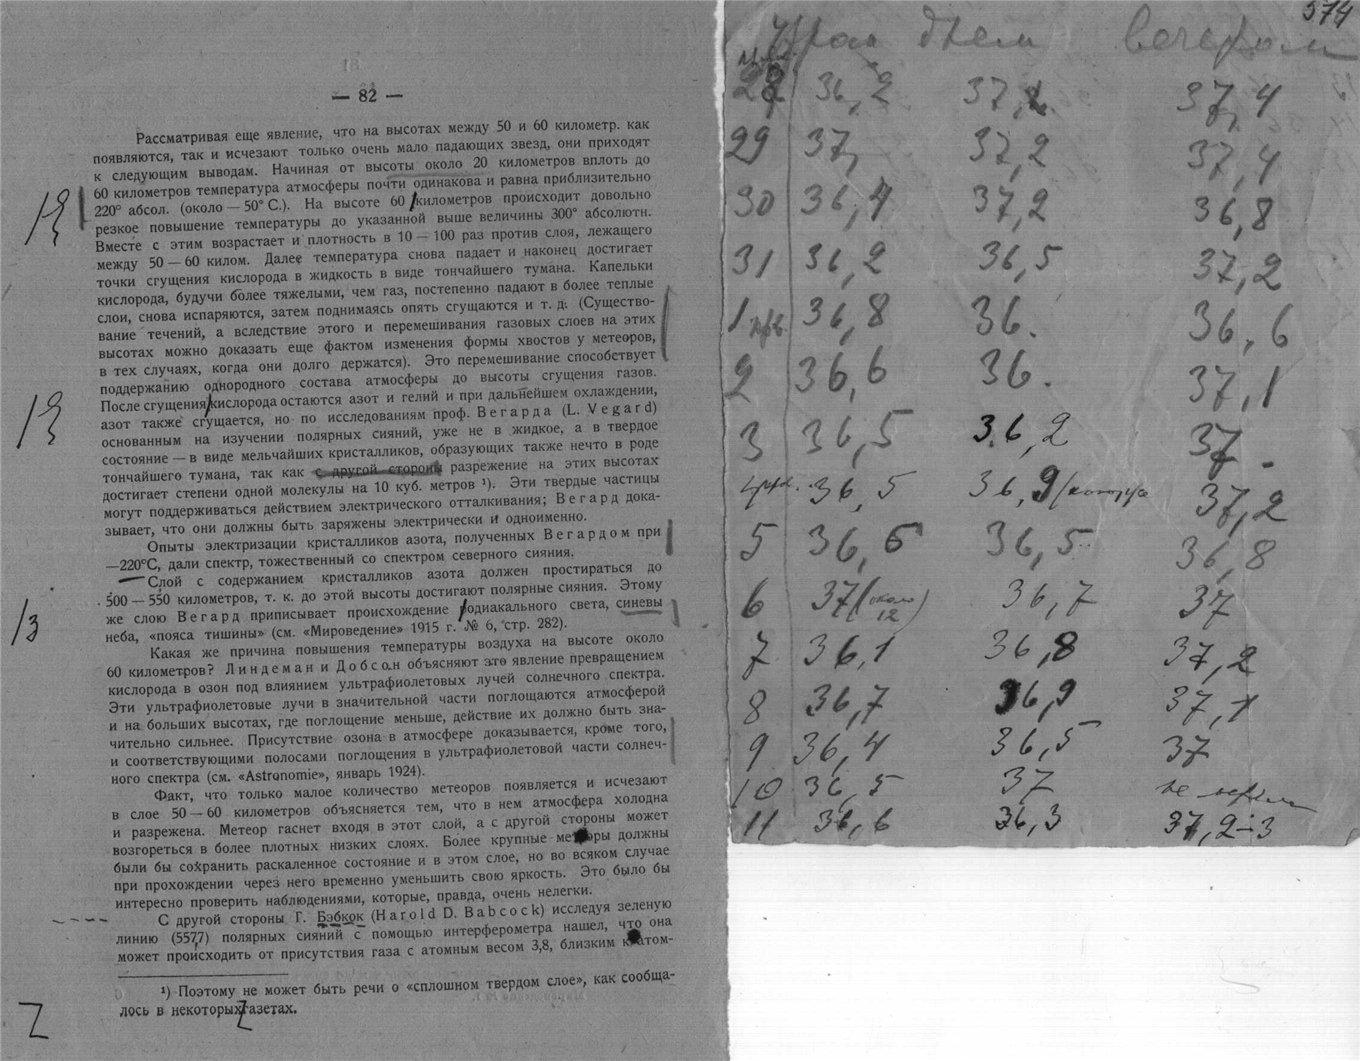 — 82 —
Рассматривая еще явление, что на высотах между 50 и 60 километр. как
появляются, так и исчезают только очень мало падающих звезд, они приходят
к следующим выводам. Начиная от высоты около 20 километров вплоть до
60 километров температура атмосферы почти одинакова и равна приблизительно
220° абсол. (около — 50° С.). На высоте 60 километров происходит довольно
резкое повышение температуры до указанной выше величины 300° абсолютн.
Вместе с этим возрастает и плотность в 10 — 100 раз против слоя, лежащего
между 50 — 60 килом. Далее температура снова падает и наконец достигает
точки сгущения кислорода в жидкость в виде тончайшего тумана. Капельки
кислорода, будучи более тяжелыми, чем газ, постепенно падают в более теплые
слои, снова испаряются, затем поднимаясь опять сгущаются и т. д. (Существо-
вание течений, а вследствие этого и перемешивания газовых слоев на этих
высотах можно доказать еще фактом изменения формы хвостов у метеоров,
в тех случаях, когда они долго держатся). Это перемешивание способствует
поддержанию однородного состава атмосферы до высоты сгущения газов.
После сгущения кислорода остаются азот и гелий и при дальнейшем охлаждении,
азот также сгущается, но по исследованиям проф. Вегарда (L. Vegard)
основанным на изучении полярных сияний, уже не в жидкое, а в твердое
состояние — в виде мельчайших кристалликов, образующих также нечто в роде
тончайшего тумана, так как с другой стороны разрежение на этих высотах
достигает степени одной молекулы на 10 куб. метров ¹). Эти твердые частицы
могут поддерживаться действием электрического отталкивания; Вегард дока-
зывает, что они должны быть заряжены электрически и одноименно.
Опыты электризации кристалликов азота, полученных Вегардом при
—220°С, дали спектр, тожественный со спектром северного сияния.
Слой с содержанием кристалликов азота должен простираться до
500 — 550 километров, т. к. до этой высоты достигают полярные сияния. Этому
же слою Вегард приписывает происхождение одиакального света, синевы
неба, «пояса тишины» (см. «Мироведение» 1915 г. № 6, стр. 282).
Какая же причина повышения температуры воздуха на высоте около
60 километров? Линдеман и Добсон объясняют это явление превращением
кислорода в озон под влиянием ультрафиолетовых лучей солнечного спектра.
Эти ультрафиолетовые лучи в значительной части поглощаются атмосферой
и на больших высотах, где поглощение меньше, действие их должно быть зна-
чительно сильнее. Присутствие озона в атмосфере доказывается, кроме того,
и соответствующими полосами поглощения в ультрафиолетовой части солнеч-
ного спектра (см. «Astronomie», январь 1924).
Факт, что только малое количество метеоров появляется и исчезают
в слое 50 — 60 километров объясняется тем, что в нем атмосфера холодна
и разрежена. Метеор гаснет входя в этот слой, а с другой стороны может
возгореться в более плотных низких слоях. Более крупные метеоры должны
были бы сохранить раскаленное состояние и в этом слое, но во всяком случае
при прохождении через него временно уменьшить свою яркость. Это было бы
интересно проверить наблюдениями, которые, правда, очень нелегки.
С другой стороны Г. Бэбкок (Harold D. Babcock) исследуя зеленую
линию (5577) полярных сияний с помощью интерферометра нашел, что она
может происходить от присутствия газа с атомным весом 3,8, близким к атом-
¹) Поэтому не может быть речи о «сплошном твердом слое», как сообща-
лось в некоторых газетах.
574
Утром днем вечером
28 36,2 37,2 37,4
29 37, 37,2 37,4
30 36,4 37,2 36,8
31 36,2 36,5 37,2
1 36,8 36. 36,6
2 36,6 36. 37,1
3 36,5 36,2 37.
4 36,5 36,9 37,2
5 36,6 36,5 36,8
6 37 (около 12) 36,7 37
7 36,1 36,8 37,2
8 36,7 36,9 37,1
9 36,4 36,5 37
10 36,5 37 не
11 36,6 36,3 37,2-3